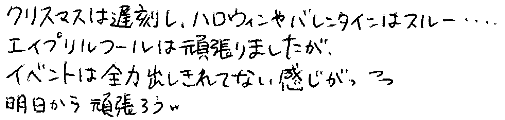 クリスマスは遅刻し、ハロウィンやバレンタインはスルー・・・・
エイプリルフールは頑張りましたが、
イベントは全力出しきれてない感じがっ つっ
明日から頑張ろうw